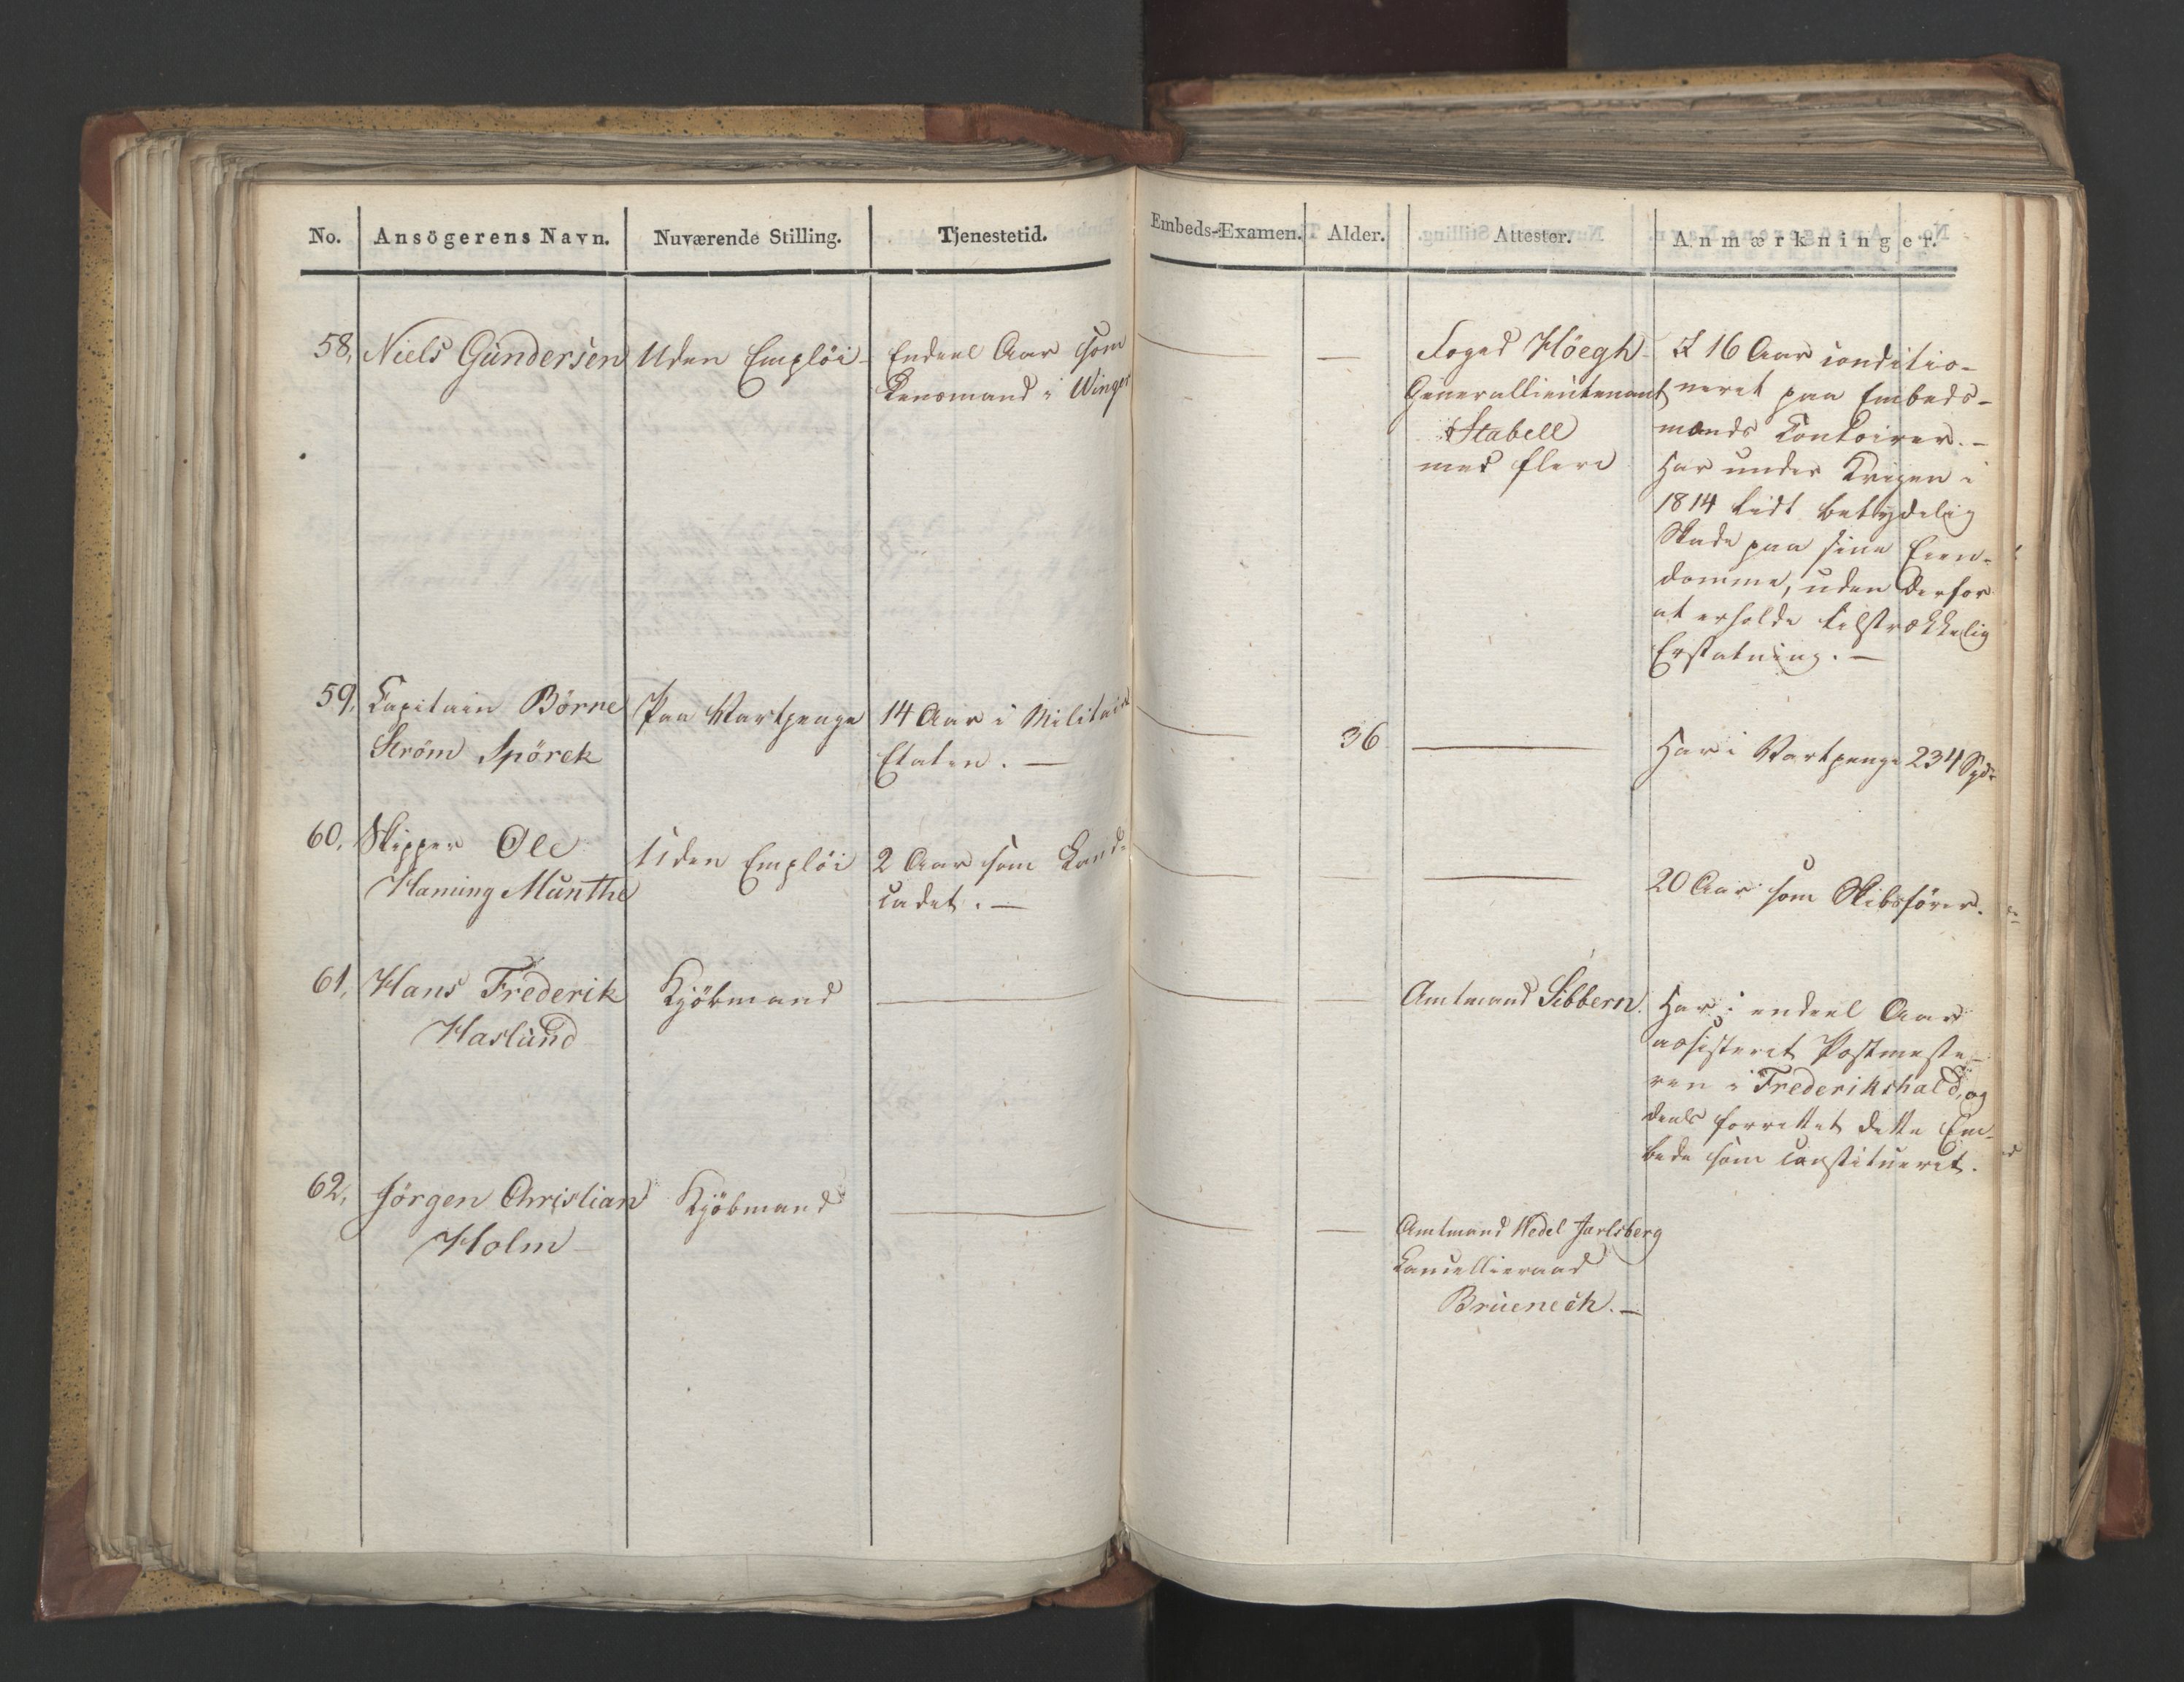 No. Ansögerens Navn. Nuværende Stilling. Tjenestetid. Embeds-Examen. Alder. Attester. Anmærkninger.
58, Niels Gundersen Uden Emplöi Endeel Aar som
Lensmand i Winger
— — Foged Höegh
Generallieutenant
Stabell
med flere
I 16 Aar conditio-
neret paa Embeds-
mænds Contoirer. -
Har under Krigen i
1814 lidt betydelig
Skade paa sine Eien-
domme, uden derfor
at erholde tilstrækkelig
Erstatning. —
59, Capitain Börre
Ström Spörck
Paa Vartpenge 14 Aar i Militair
Etaten. —
— 36 — Har i Vartpenge 234 Spd
60, Skipper Ole
Haning Munthe
Uden Emplöi 2 Aar som Land-
cadet. —
— — — 20 Aar som Skibsförer.
61, Hans Frederik
Haslund
Kjöbmand — — — Amtmand Sibbern. Har i endeel Aar
assisteret Postmeste-
ren i Frederikshald, og
deels forrettet dette Em-
bede som constitueret.
62, Jörgen Christian
Holm
Kjöbmand — — — Amtmand Wedel Jarlsberg
Cancellieraad
Bruenech. —